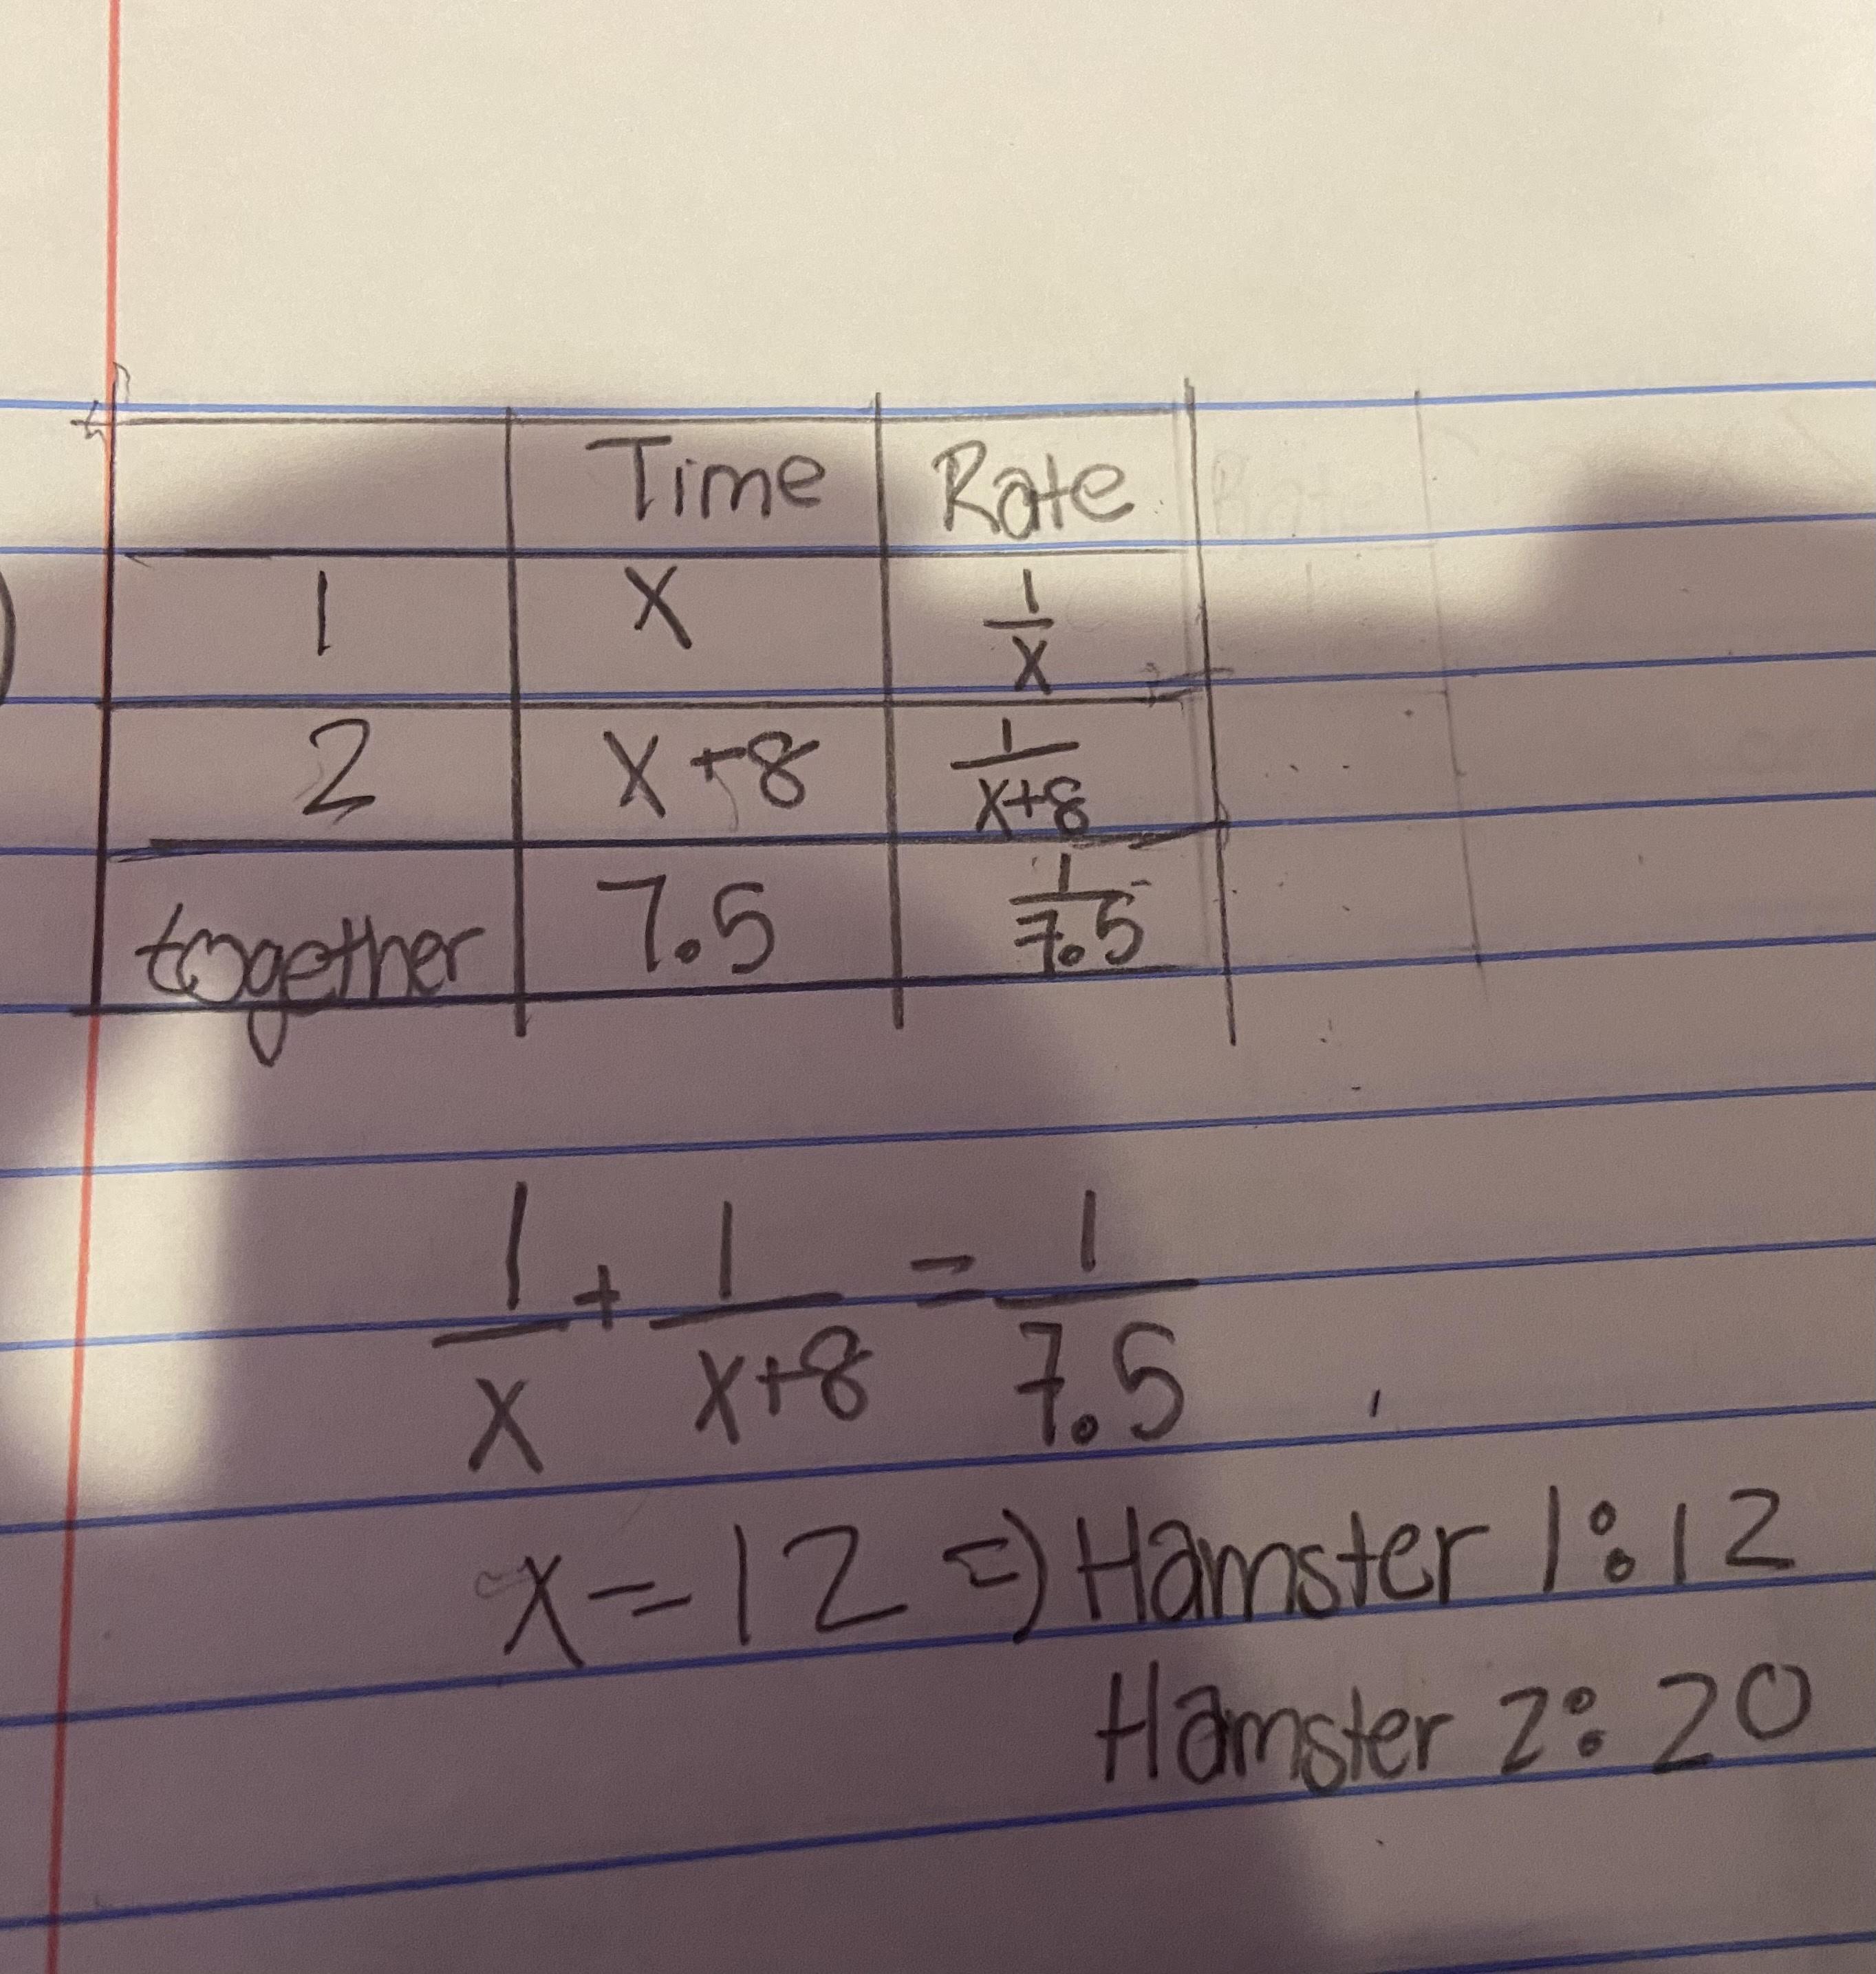 Time Rate
1 x 1/x
2 x+8 1/(x+8)
together 7.5 1/7.5
1/x + 1/(x+8) = 1/7.5
x=12 => Hamster 1: 12
Hamster 2: 20